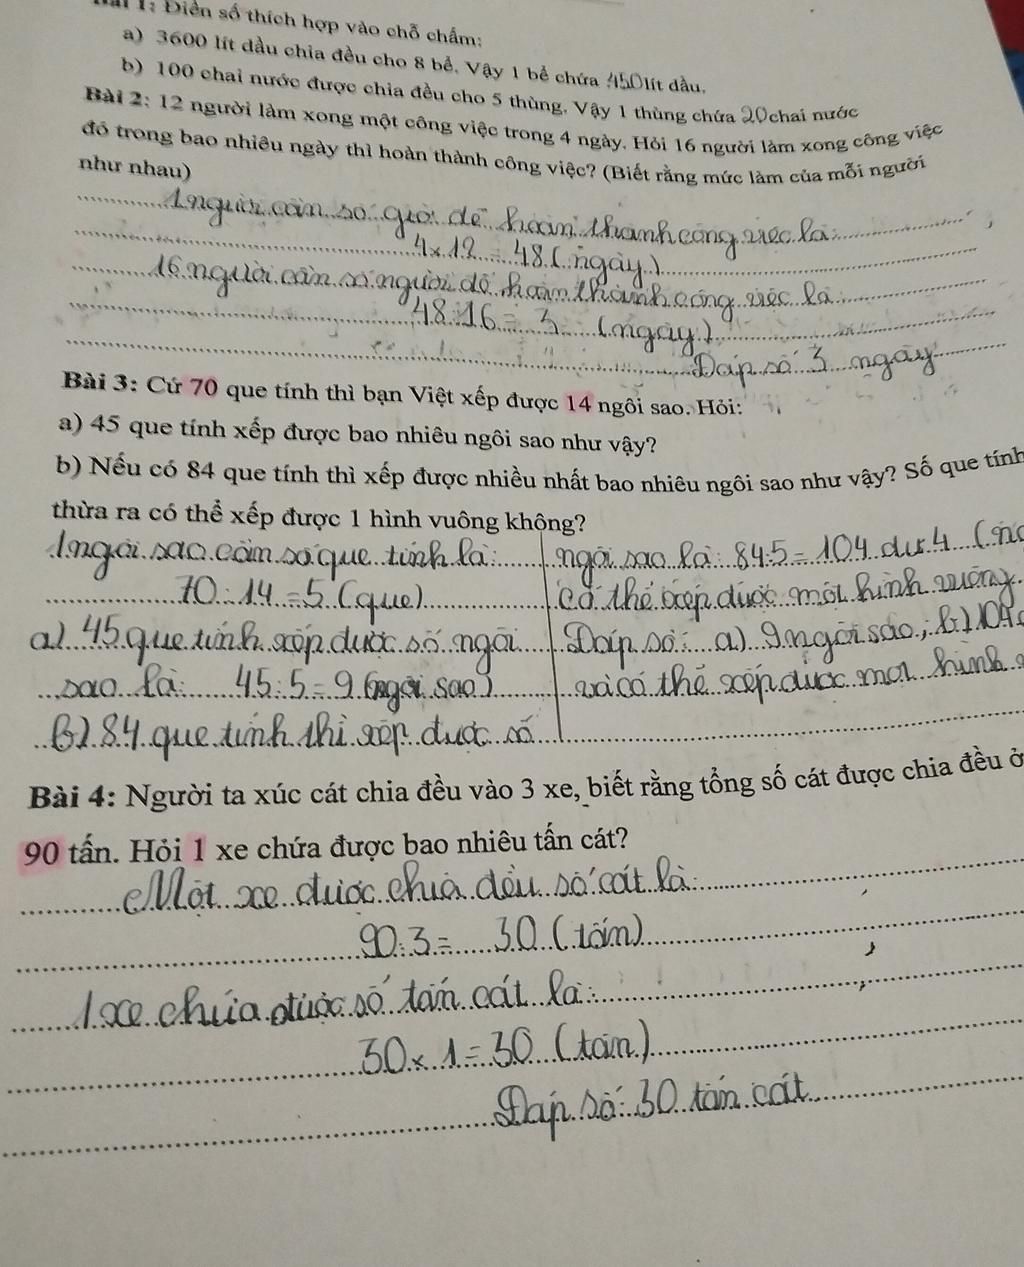 Bài 1: Điền số thích hợp vào chỗ chấm:
a) 3600 lít dầu chia đều cho 8 bể. Vậy 1 bể chứa 450 lít dầu.
b) 100 chai nước được chia đều cho 5 thùng. Vậy 1 thùng chứa 20 chai nước
Bài 2: 12 người làm xong một công việc trong 4 ngày. Hỏi 16 người làm xong công việc
đó trong bao nhiêu ngày thì hoàn thành công việc? (Biết rằng mức làm của mỗi người
như nhau)
1 người cần số giờ để hoàn thành công việc là:
4 x 12 = 48 (ngày)
16 người cần số người để hoàn thành công việc là:
48:16 = 3 (ngày)
Đáp số 3 ngày
Bài 3: Cứ 70 que tính thì bạn Việt xếp được 14 ngôi sao. Hỏi:
a) 45 que tính xếp được bao nhiêu ngôi sao như vậy?
b) Nếu có 84 que tính thì xếp được nhiều nhất bao nhiêu ngôi sao như vậy? Số que tính
thừa ra có thể xếp được 1 hình vuông không?
1 ngôi sao cần số que tính là:
70:14 = 5 (que)
a) 45 que tính xếp được số ngôi
sao là: 45:5 = 9 (ngôi sao)
b) 84 que tính thì xếp được số
ngôi sao là: 84:5 = 104 dư 4
có thể xếp được một hình vuông.
Đáp số: a) 9 ngôi sao; b) 104
và có thể xếp được một hình
Bài 4: Người ta xúc cát chia đều vào 3 xe, biết rằng tổng số cát được chia đều ở
90 tấn. Hỏi 1 xe chứa được bao nhiêu tấn cát?
Một xe được chia đều số cát là:
90:3 = 30 (tấn)
1 xe chứa được số tấn cát là:
30 x 1 = 30 (tấn)
Đáp số: 30 tấn cát